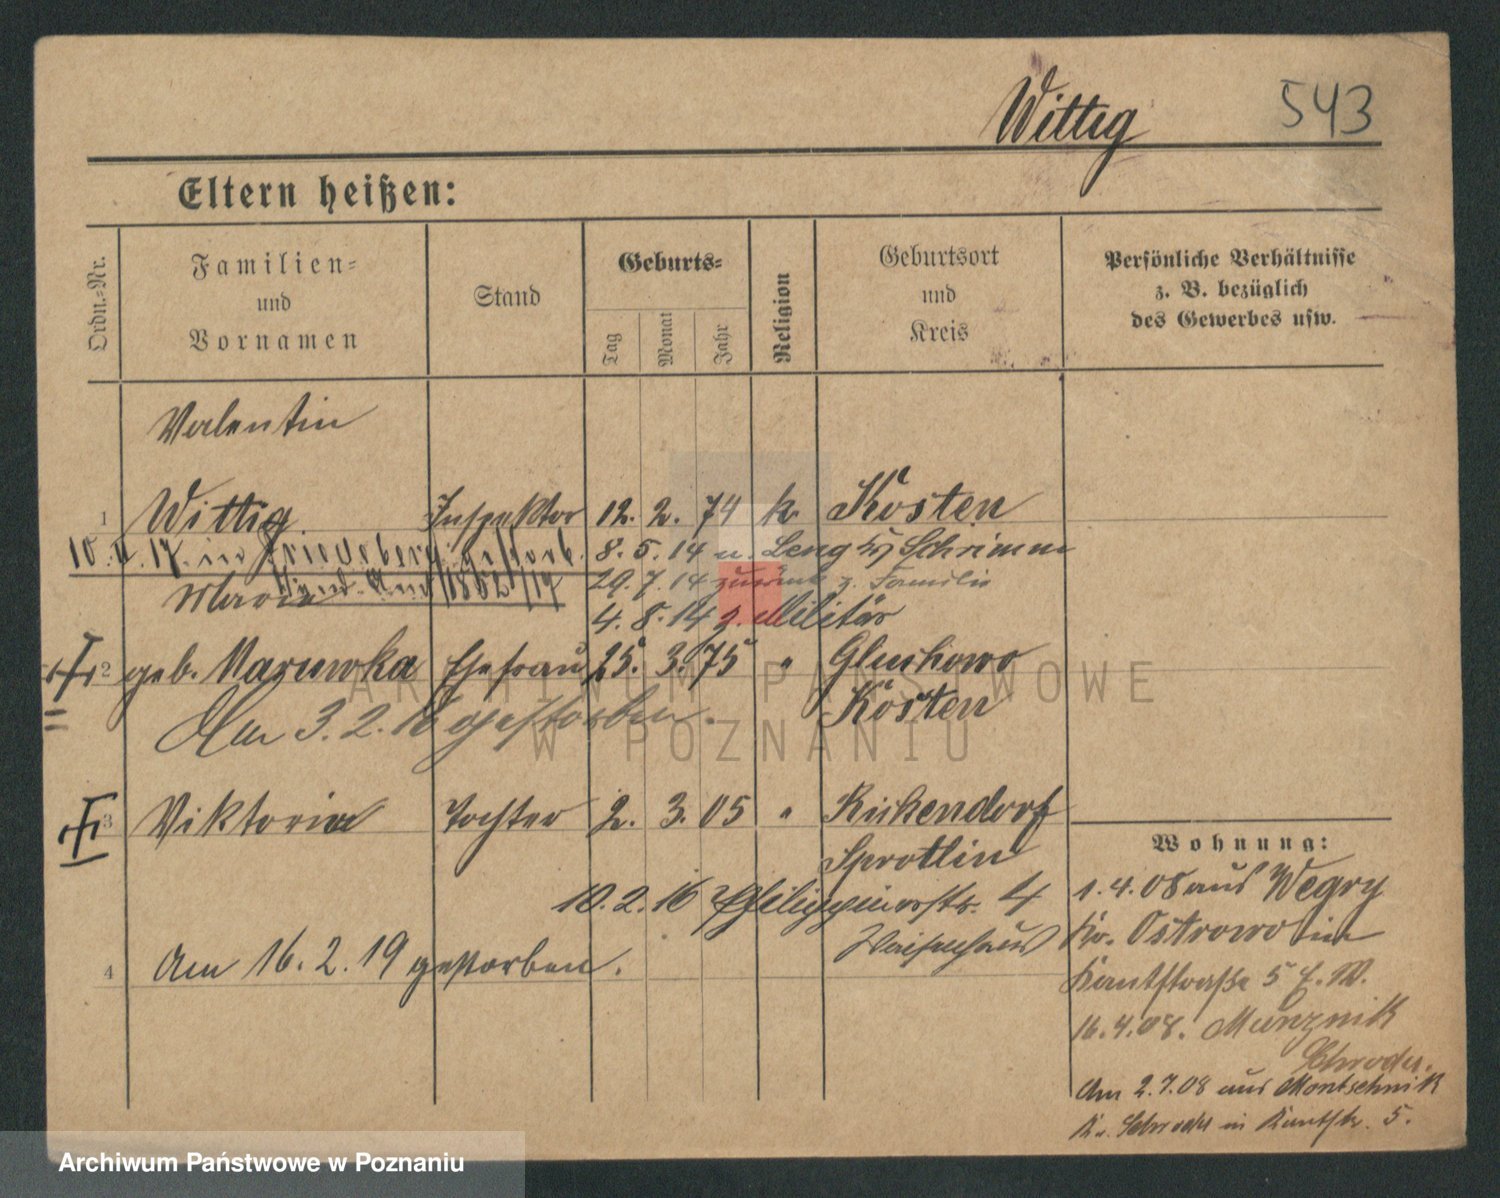 Wittig
543
Eltern heißen:
Ordn.-Nr.
Familien-
und
Vornamen
Stand
Geburts-
Tag
Monat
Jahr
Religion
Geburtsort
und
Kreis
Persönliche Verhältnisse
z. B. bezüglich
des Gewerbes usw.
Valentin
1 Wittig Inspektor 12. 2. 74 k. Kosten
10. 17. in Friedeberg gestorb. 8. 5. 14 n. Schrimm
Maria 29. 7. 14 zurück z. Familie
4. 8. 14 z. Militär
2 geb. Ehefrau 25. 3. 75 " Gluchowo
Am 3. 2. gestorben. Kosten
3 Viktoria Tochter 2. 3. 05 "
Sprottin
10. 2. 16 4
Waisenhaus
4 Am 16. 2. 19 gestorben.
Wohnung:
1. 4. 08 aus Wegry
Kr. Ostrowo in
Kantstraße 5 E. W.
16. 4. 08.
Schroda.
Am 2. 7. 08 aus Montschnik
Kr. Schroda in Kantstr. 5.
ARCHIWUM PAŃSTWOWE
W POZNANIU
Archiwum Państwowe w Poznaniu